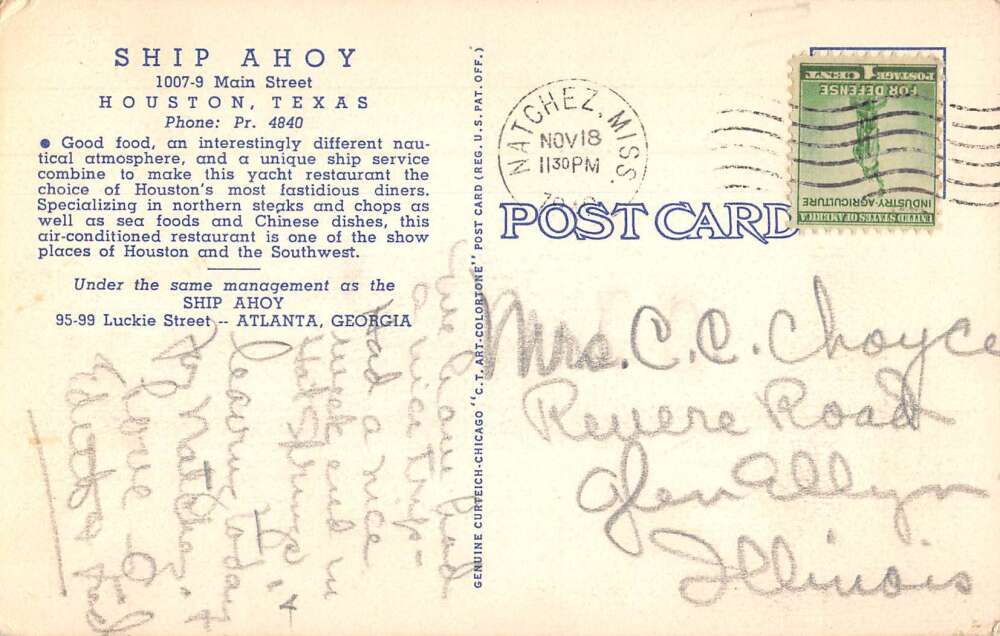 SHIP AHOY
1007-9 Main Street
HOUSTON, TEXAS
Phone: Pr. 4840
● Good food, an interestingly different nau-
tical atmosphere, and a unique ship service
combine to make this yacht restaurant the
choice of Houston's most fastidious diners.
Specializing in northern steaks and chops as
well as sea foods and Chinese dishes, this
air-conditioned restaurant is one of the show
places of Houston and the Southwest.
Under the same management as the
SHIP AHOY
95-99 Luckie Street -- ATLANTA, GEORGIA
have had
a nice trip-
Had a nice
week end in
Hot Springs
leaving today
for Natchez
Love
Edith
GENUINE CURTEICH-CHICAGO "C.T. ART-COLORTONE" POST CARD (REG. U.S. PAT. OFF.)
NATCHEZ, MISS.
NOV 18
11 30 PM
POST CARD
UNITED STATES OF AMERICA
INDUSTRY-AGRICULTURE
FOR DEFENSE
1 CENT
POSTAGE
Mrs. C. C. Choyce
Revere Road
Glen Ellyn
Illinois